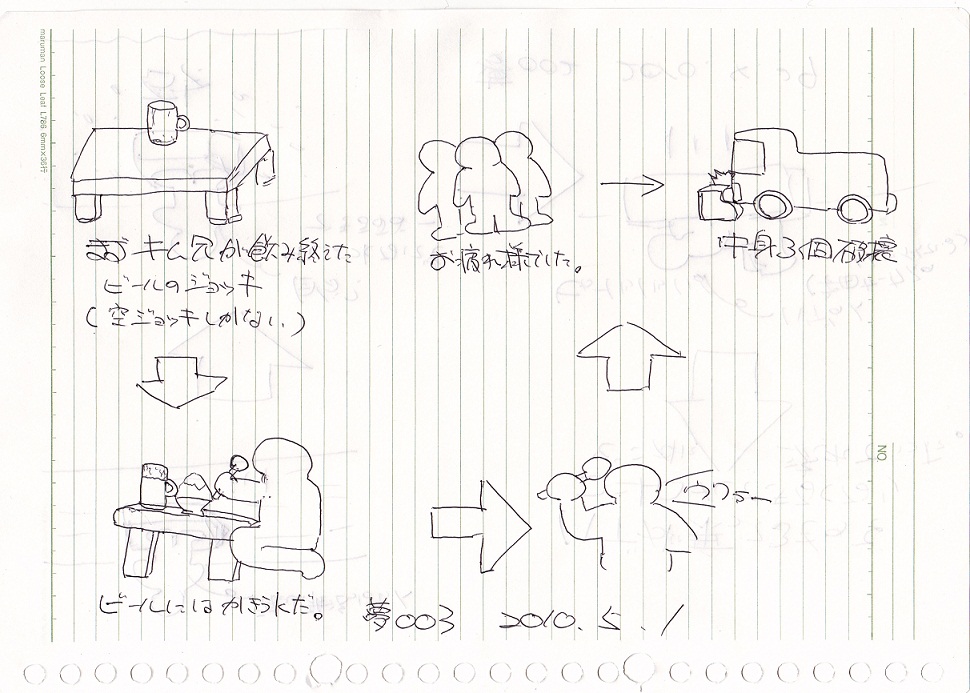 maruman Loose Leaf
キム兄が飲み終えた
ビールのジョッキ
(空ジョッキしかない)
お疲れ様でした。
中身3個破壊
NO.
ビールにはかき氷だ。
夢003 2010.5.1